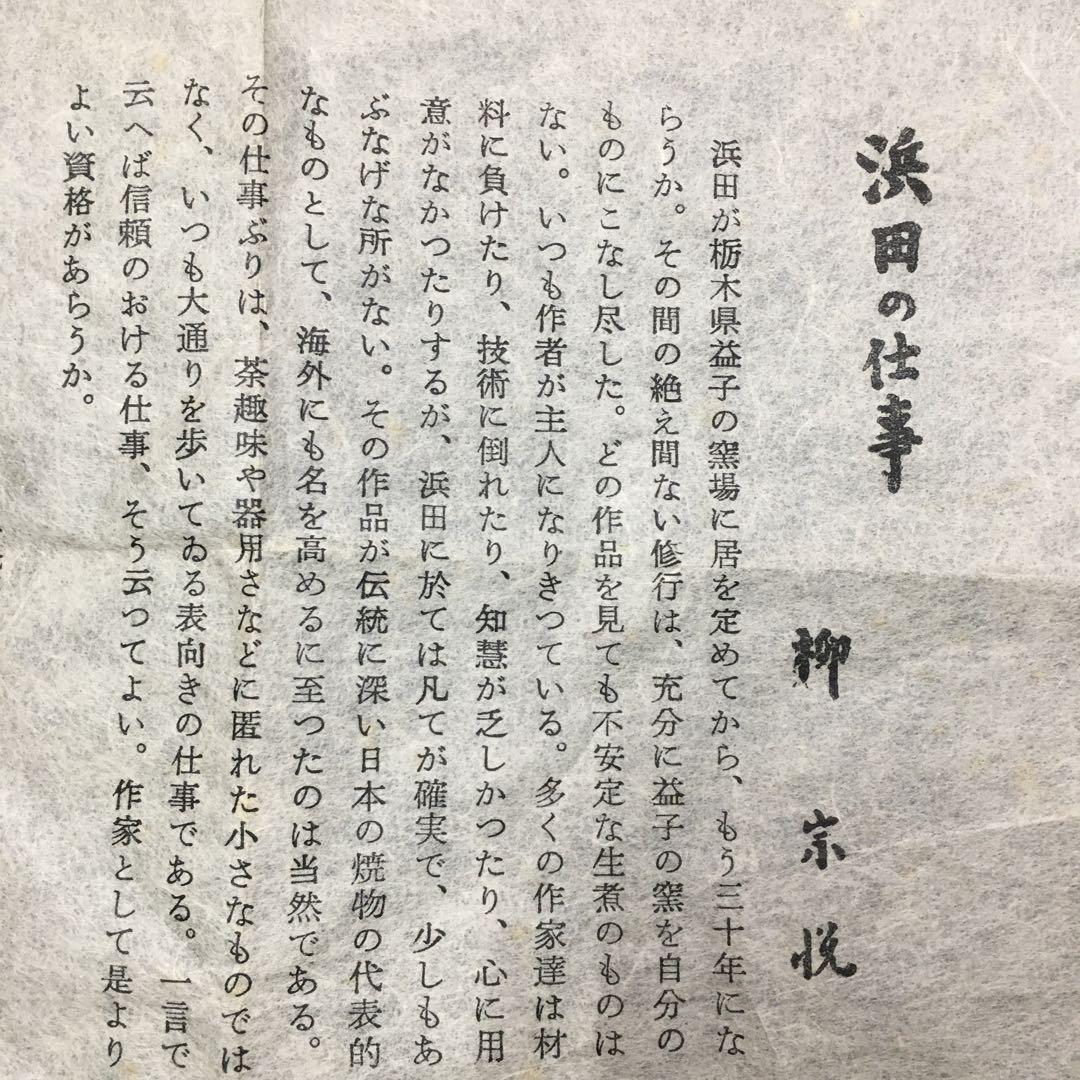 浜田の仕事
柳宗悦
浜田が栃木県益子の窯場に居を定めてから、もう三十年にな
らうか。その間の絶え間ない修行は、充分に益子の窯を自分の
ものにこなし尽した。どの作品を見ても不安定な生煮のものは
ない。いつも作者が主人になりきつている。多くの作家達は材
料に負けたり、技術に倒れたり、知慧が乏しかつたり、心に用
意がなかつたりするが、浜田に於ては凡てが確実で、少しもあ
ぶなげな所がない。その作品が伝統に深い日本の焼物の代表的
なものとして、海外にも名を高めるに至つたのは当然である。
その仕事ぶりは、茶趣味や器用さなどに匿れた小さなものでは
なく、いつも大通りを歩いてゐる表向きの仕事である。一言で
云へば信頼のおける仕事、そう云つてよい。作家として是より
よい資格があらうか。